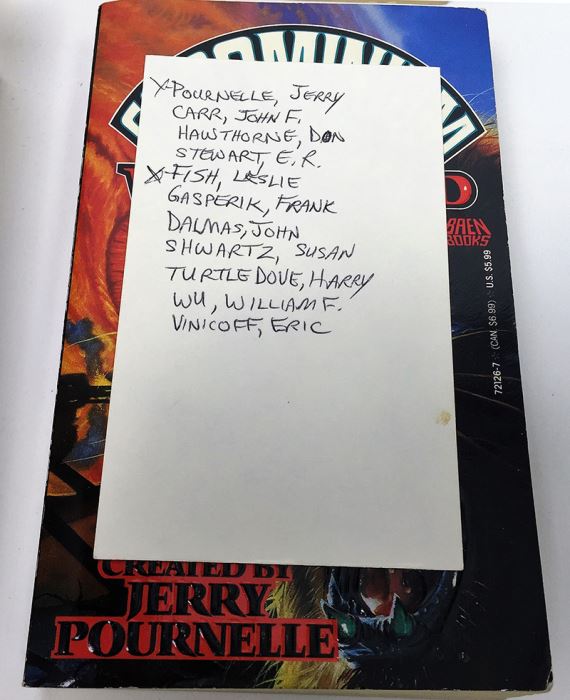 X-POURNELLE, JERRY
CARR, JOHN F.
HAWTHORNE, DON
STEWART, E.R.
X-FISH, LESLIE
GASPERIK, FRANK
DALMAS, JOHN
SHWARTZ, SUSAN
TURTLEDOVE, HARRY
WU, WILLIAM F.
VINICOFF, ERIC
BAEN
BOOKS
72126-7 (CAN. $6.99) U.S. $5.99
CREATED BY
JERRY
POURNELLE